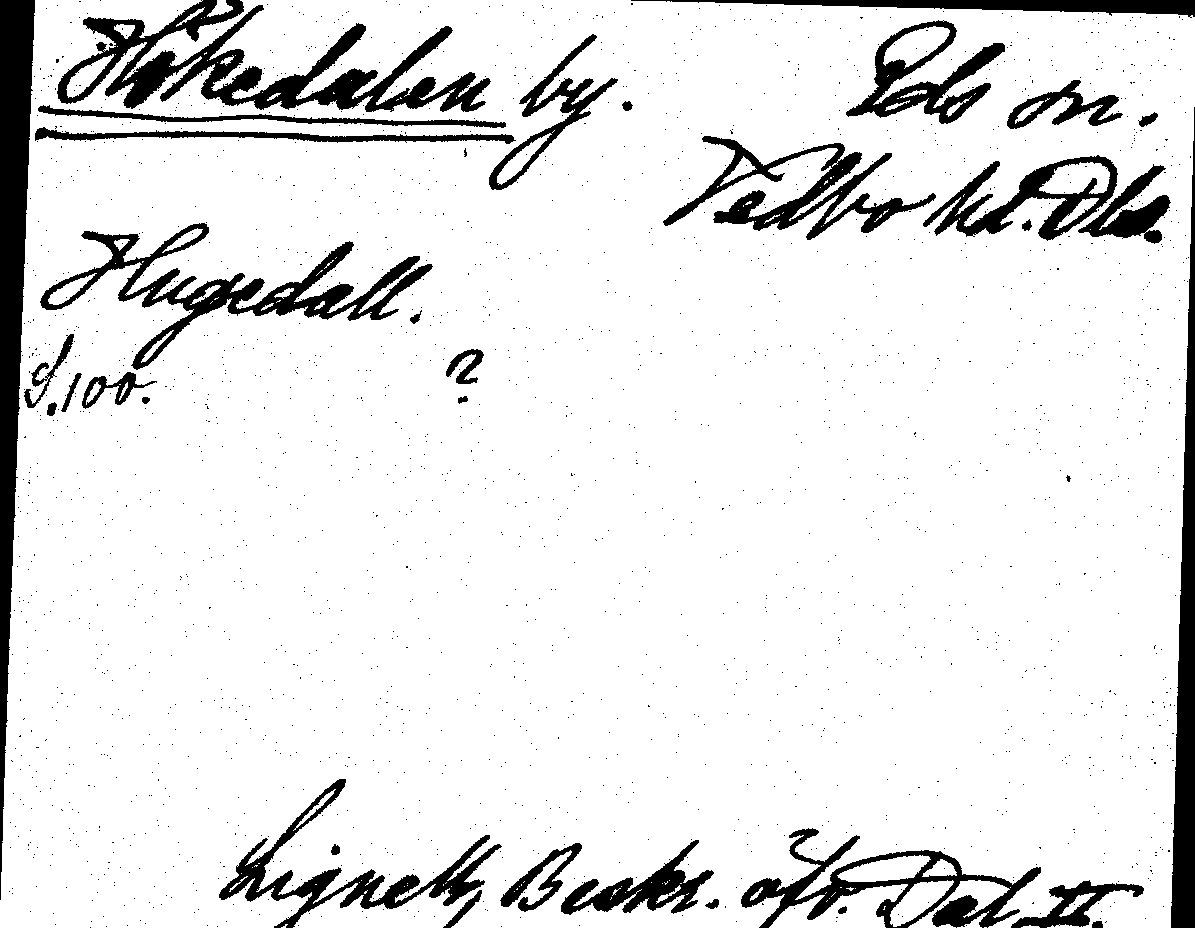 Hökedalen by. Eds sn.
Vedbo hd. Dls.
Hugedall.
S. 100. ?
Lignell, Beskr. öfv. Dal II.